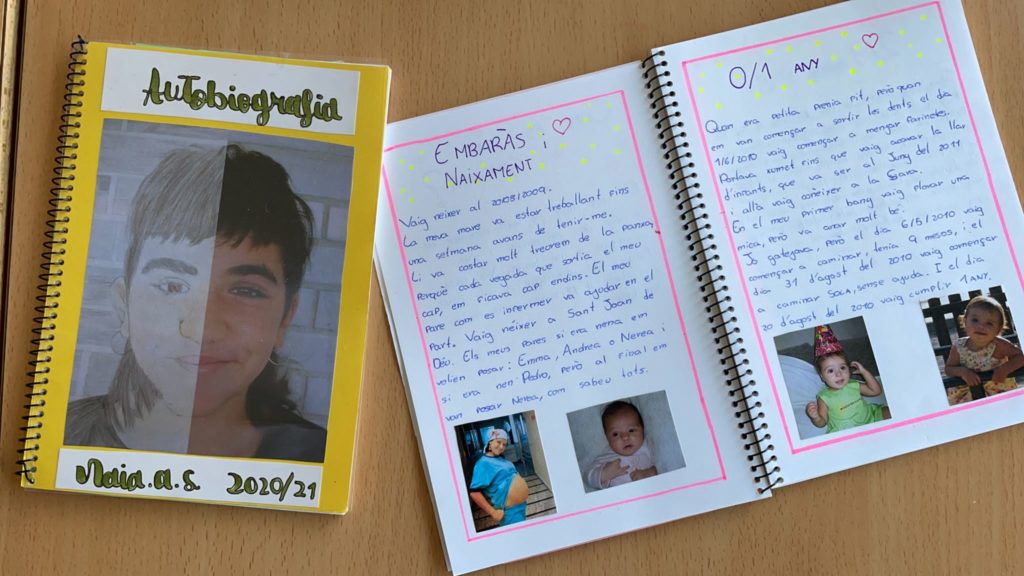 AuTobiografia
Naia.a.S 2020/21
EMBARÀS i
NAIXAMENT
Vaig néixer al 20/08/2009.
La meva mare va estar treballant fins
una setmana avans de tenir-me.
Li va costar molt treurem de la panxa,
perquè cada vegada que sortia el meu
cap, em ficava cap endins. El meu
pare com es infermer va ajudar en el
part. Vaig néixer a Sant Joan de
Déu. Els meus pares si era nena em
volien posar: Emma, Andrea o Nerea i
si era nen: Pedro, però al final em
van posar Nerea, com sabeu tots.
0/1 ANY
Quan era petita prenia pit, però quan
em van començar a sortir les dents el dia
1/6/2010 vaig començar a menjar farinetes.
Portava xumet fins que vaig acavar la llar
d'infants, que va ser al Juny del 2011
i allà vaig conèixer a la Sara.
En el meu primer bany vaig plorar una
mica, però va anar molt bé.
Jo gatejava, però el dia 6/5/2010 vaig
començar a caminar, tenia 9 mesos, i el
dia 31 d'agost del 2010 vaig començar
a caminar SOLA, sense ajuda. I el dia
20 d'agost del 2010 vaig cumplir 1 ANY.